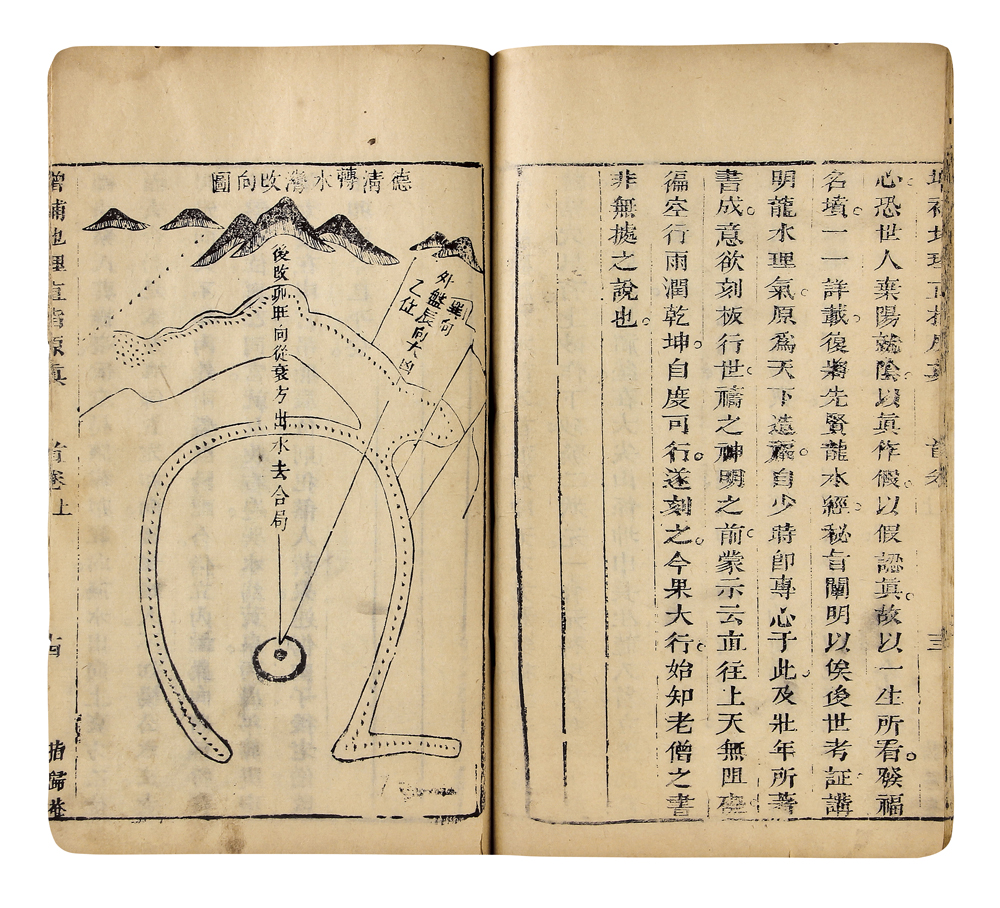 增補地理直指原眞　首卷　三
心。恐世人棄陽就陰。以眞作假。以假認眞。故以一生所看。發福
名墳。一一詳載。復將先賢龍水經。秘旨闡明以俟後世考証講
明龍水理氣。原爲天下造福。自少時即專心于此。及壯年所著
書成。意欲刻板行世。禱之神明之前。蒙示云直往上天無阻礙。
徧空行雨潤乾坤。自度可行。遂刻之。今果大行。始知老僧之書
非無據之說也。
德清轉水海改向圖
巽向
外盤辰向大凶
乙位
後改卯旺向從衰方出水去合局
增補地理直指原眞　首卷上　十四　指歸菴